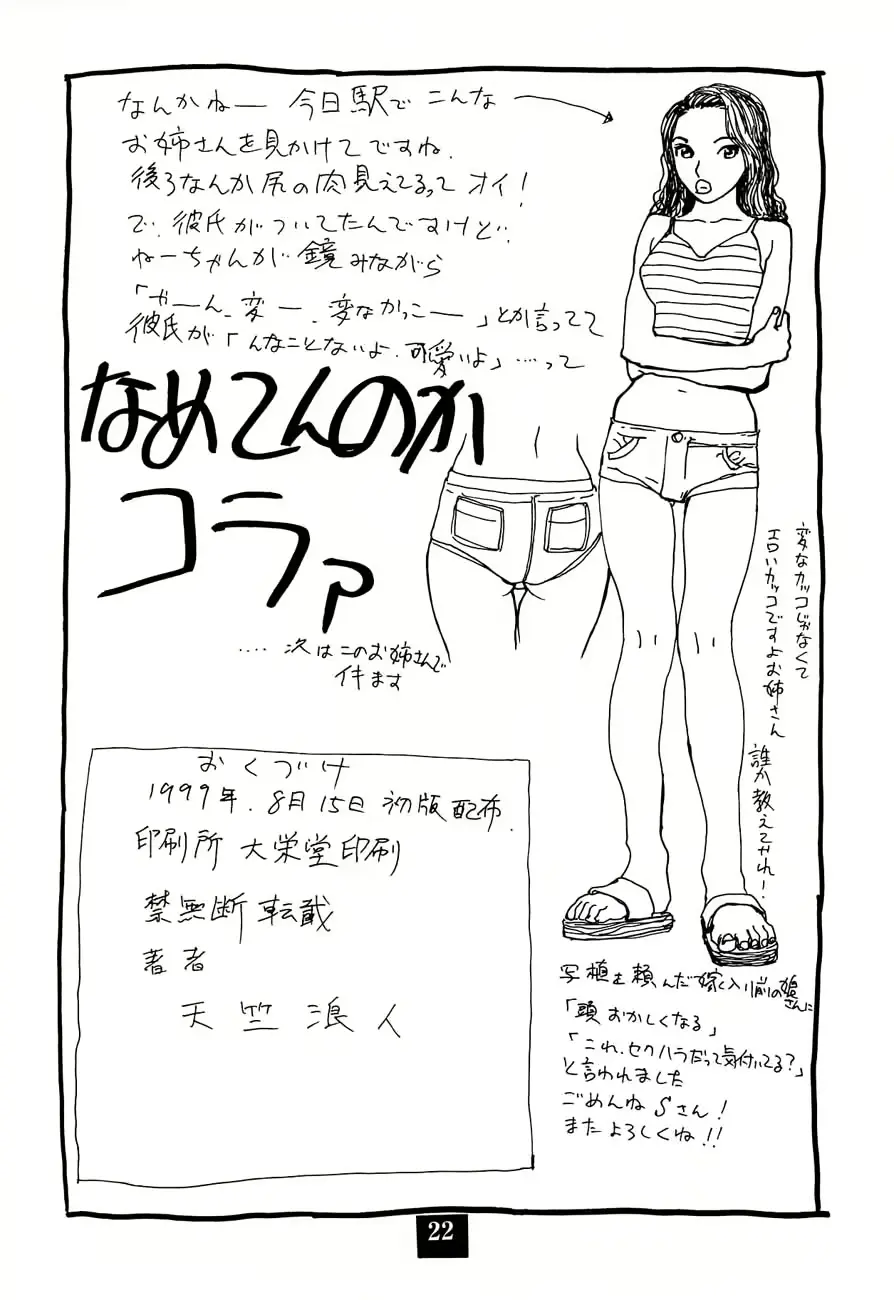 なんかねー 今日駅で こんな
お姉さんを見かけてですね.
後ろなんか尻の肉見えてるって オイ!
で、彼氏がついてたんですけど、
ねーちゃんが鏡みながら
「やーん、変ー、変なかっこー」とか言ってて
彼氏が「んなことないよ、可愛いよ」…って
なめてんのか
コラァ
…. 次はこのお姉さんで
イキます
変なカッコじゃなくて
エロいカッコですよお姉さん
誰か教えてやれ!
おくづけ
1999年.8月15日 初版配布.
印刷所 大栄堂印刷
禁無断転載
著者
天竺浪人
写植を頼んだ嫁入り前の娘さんに
「頭おかしくなる」
「これ、セクハラだって気付いてる?」
と言われました
ごめんね Sさん!
またよろしくね!!
22